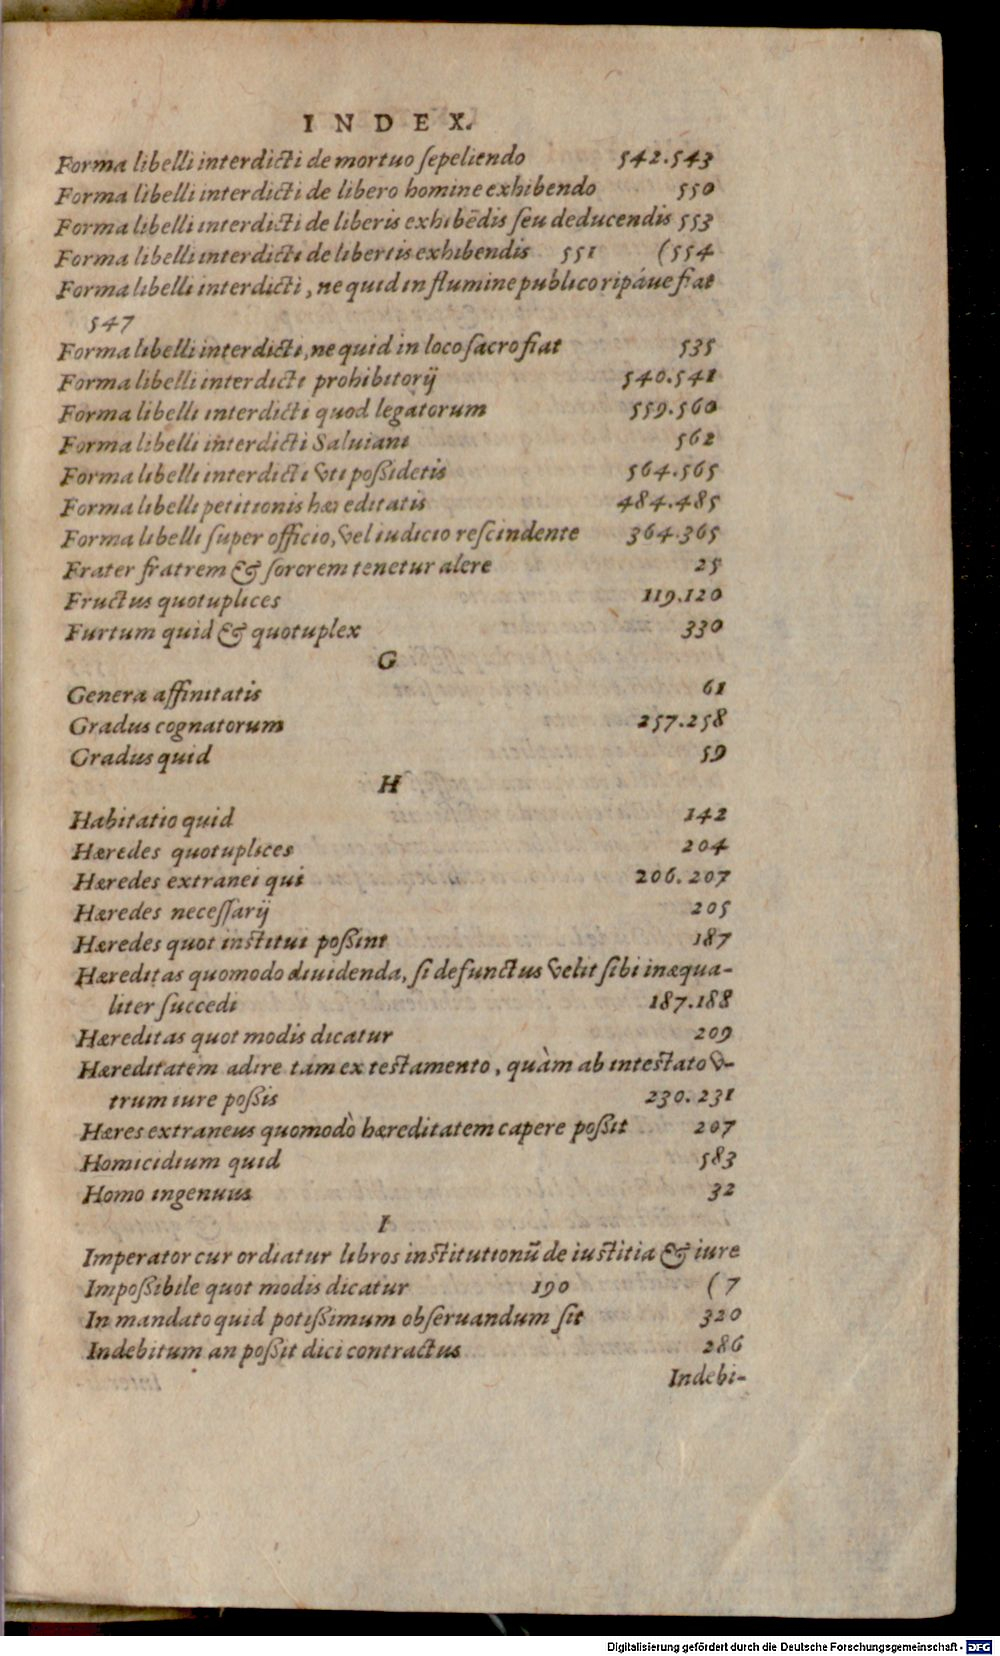 INDEX.
Forma libelli interdicti de mortuo ſepeliendo 542.543
Forma libelli interdicti de libero homine exhibendo 550
Forma libelli interdicti de liberis exhibēdis ſeu deducendis 553
Forma libelli interdicti de libertis exhibendis 551 (554
Forma libelli interdicti, ne quid in flumine publico ripáue fiat
547
Forma libelli interdicti, ne quid in loco ſacro fiat 535
Forma libelli interdicti prohibitorij 540.541
Forma libelli interdicti quod legatorum 559.560
Forma libelli interdicti Saluiani 562
Forma libelli interdicti vti poßidetis 564.565
Forma libelli petitionis hæreditatis 484.485
Forma libelli ſuper officio, vel iudicio reſcindente 364.365
Frater fratrem & ſororem tenetur alere 25
Fructus quotuplices 119.120
Furtum quid & quotuplex 330
G
Genera affinitatis 61
Gradus cognatorum 257.258
Gradus quid 59
H
Habitatio quid 142
Hæredes quotuplices 204
Hæredes extranei qui 206.207
Hæredes neceſſarij 205
Hæredes quot inſtitui poßint 187
Hæreditas quomodo diuidenda, ſi defunctus velit ſibi inæqua-
liter ſuccedi 187.188
Hæreditas quot modis dicatur 209
Hæreditatem adire tam ex teſtamento, quàm ab inteſtato v-
trum iure poßis 230.231
Hæres extraneus quomodò hæreditatem capere poßit 207
Homicidium quid 583
Homo ingenuus 32
I
Imperator cur ordiatur libros inſtitutionū de iuſtitia & iure
Impoßibile quot modis dicatur 190 (7
In mandato quid potißimum obſeruandum ſit 320
Indebitum an poßit dici contractus 286
Indebi-
Digitalisierung gefördert durch die Deutsche Forschungsgemeinschaft - DFG